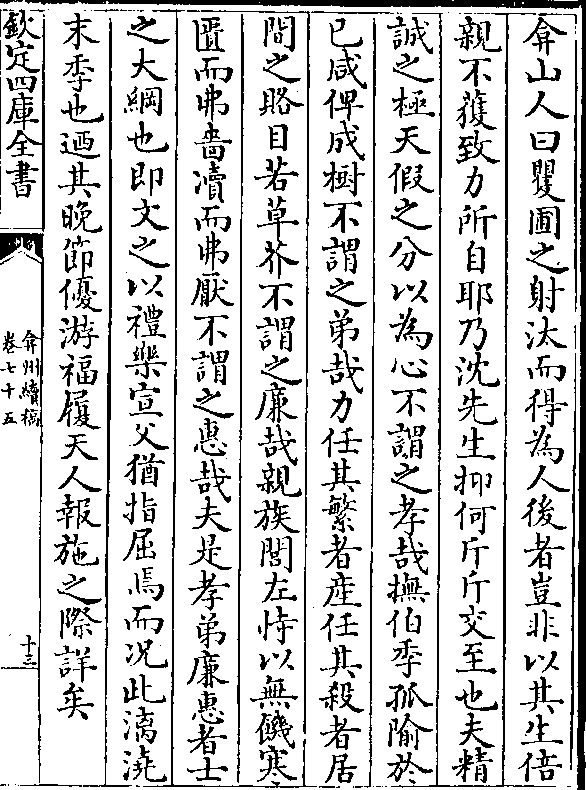 弇山人曰矍圃之射汰而得為人後者豈非以其生倍
親不獲致力所自耶乃沈先生抑何斤斤交至也夫精
誠之極天假之分以為心不謂之孝哉撫伯季孤隃於
已咸俾成樹不謂之弟哉力任其繁者産任其殺者居
間之賂目若草芥不謂之廉哉親族閭左恃以無饑寒
匱而弗嗇瀆而弗厭不謂之惠哉夫是孝弟廉惠者士
之大綱也即文之以禮樂宣父猶指屈焉而况此漓澆
末季也迺其晚節優游福履天人報施之際詳矣
欽定四庫全書
弇州續稿
卷七十五
十三